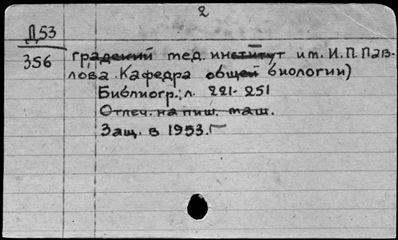 2
Д53
356
градский мед. институт им. И.П. Пав-
лова. Кафедра общей биологии)
Библиогр.: л. 221-251
Отпеч. на пиш. маш.
Защ. в 1953.г